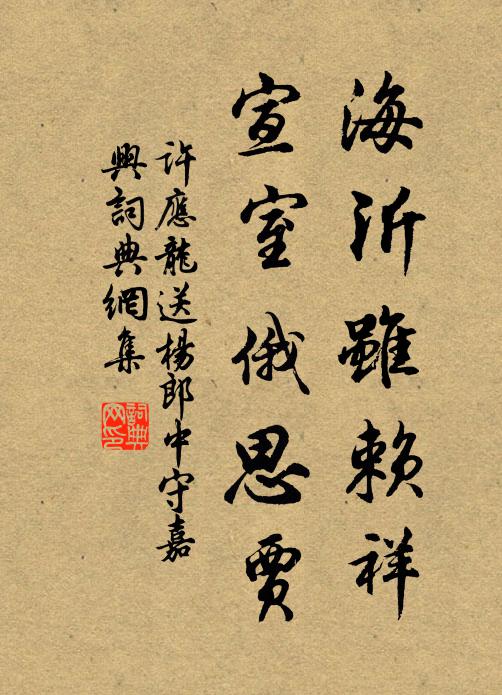 海沂雖賴祥
宣室俄思賈
許應龍送楊郎中守嘉
興詞典網集
詞典网印